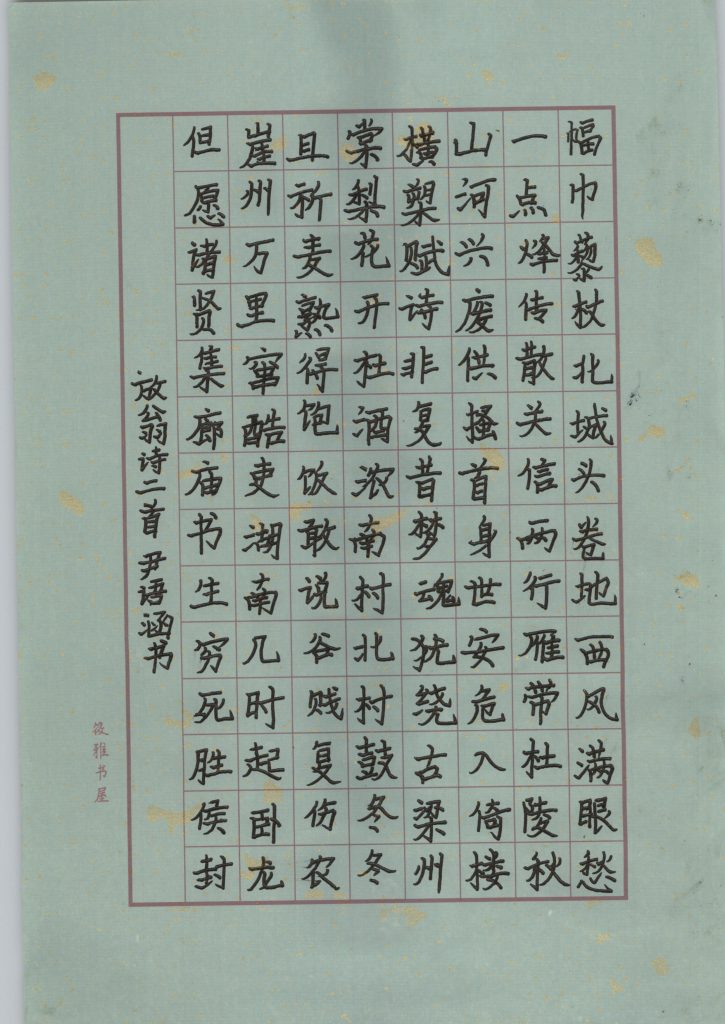 幅巾藜杖北城头卷地西风满眼愁
一点烽传散关信两行雁带杜陵秋
山河兴废供搔首身世安危入倚楼
横槊赋诗非复昔梦魂犹绕古梁州
棠梨花开杜酒浓南村北村鼓冬冬
且祈麦熟得饱饭敢说谷贱复伤农
崖州万里窜酷吏湖南几时起卧龙
但愿诸贤集廊庙书生穷死胜侯封
放翁诗二首 尹语涵书
筱雅书屋